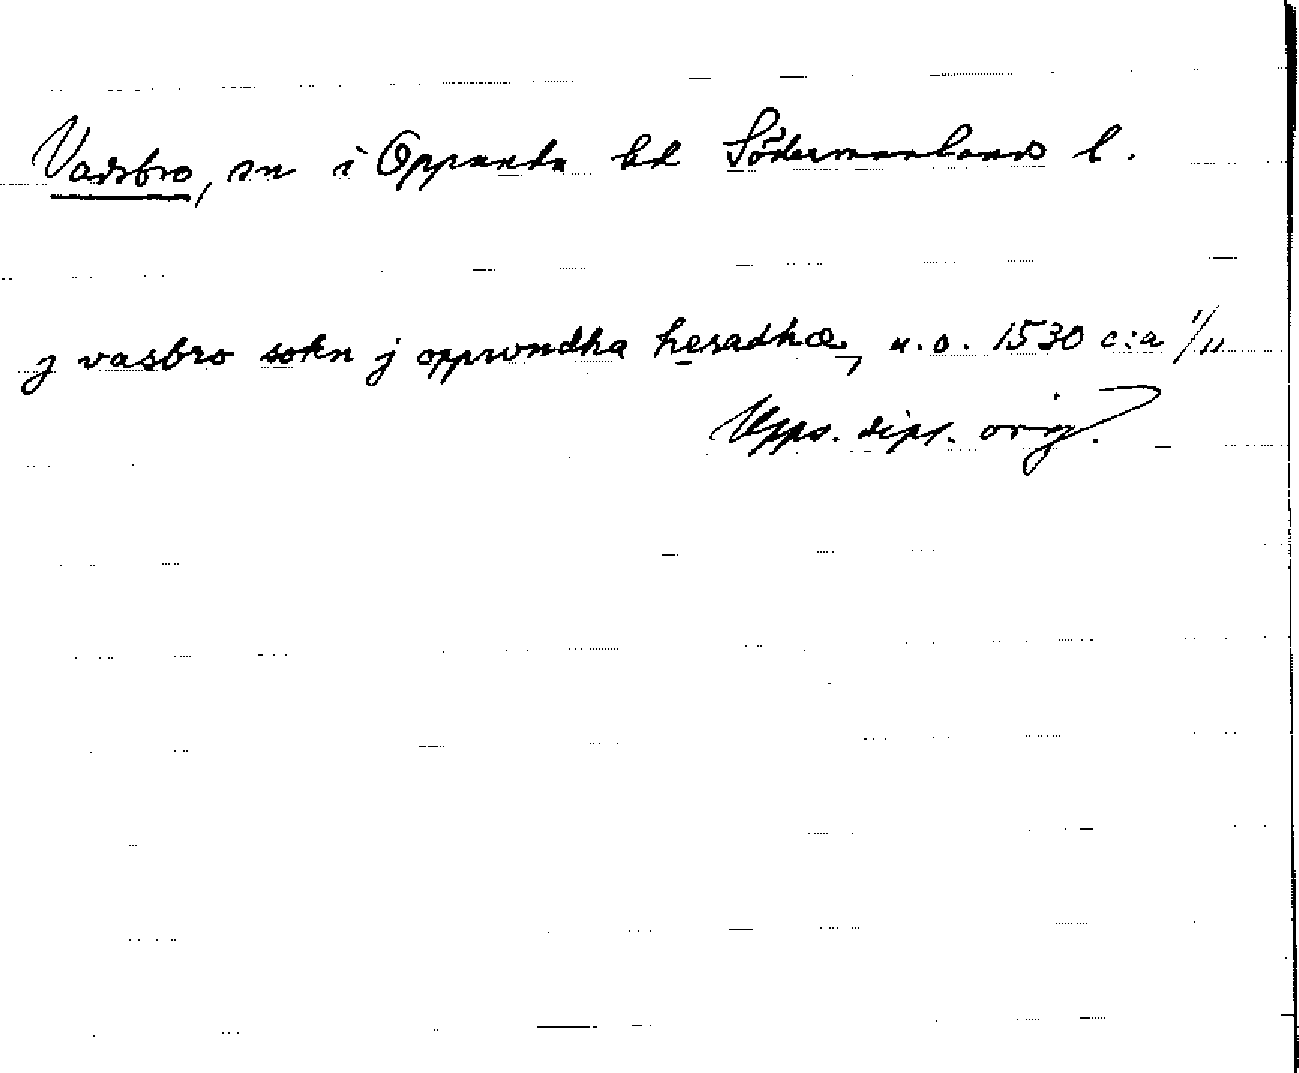 Vadsbro, sn i Oppunda hd Södermanlands l.
j vasbro sokn j opprondha heradhæ, u.o. 1530 c:a 1/11
Upps. dipl. orig.